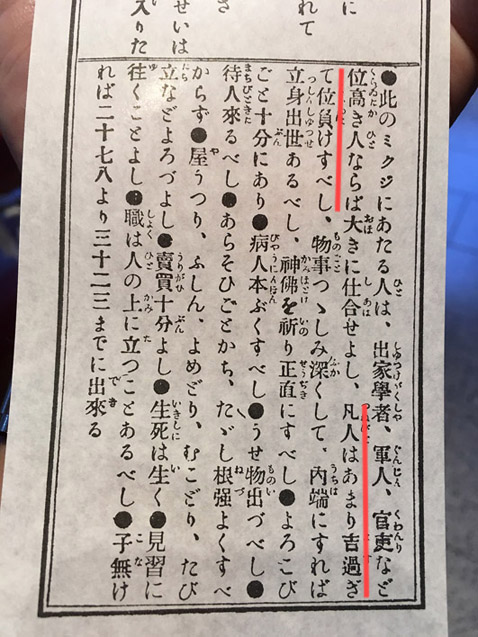 に
れて
さ
せいは
入りた
●此のミクジにあたる人は、出家學者、軍人、官吏など
位高き人ならば大きに仕合せよし、凡人はあまり吉過ぎ
て位負けすべし、物事つゝしみ深くして、内端にすれば
立身出世あるべし、神佛を祈り正直にすべし●よろこび
ごと十分にあり●病人本ぶくすべし●うせ物出づべし●
待人來るべし●あらそひごとかち、たゞし根强よくすべ
からず●屋うつり、ふしん、よめどり、むこどり、たび
立などよろづよし●賣買十分よし●生死は生く●見習に
往くことよし●職は人の上に立つことあるべし●子無け
れば二十七八より三十二三までに出來る